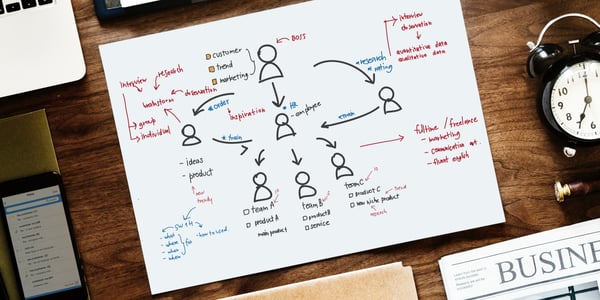 BOSS
customer
trend
marketing
interview
observation
quantitative data
qualitative data
research
rating
interview
research
observation
brainstorm
group
individual
order
inspiration
HR
employee
train
ideas
product
new
trendy
fulltime / freelance
- marketing
- communication
- fluent english
team A
product A
main product
team B
product B
service
team C
product C
new niche product
trend
research
what
where
when
when
for
how to used
BUSINE